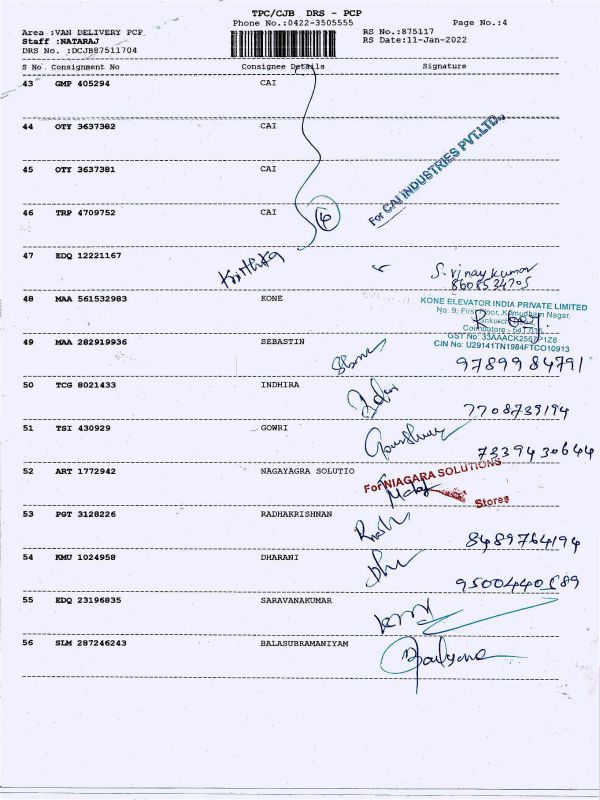 TPC/CJB DRS - PCP
Phone No.:0422-3505555
Page No.:4
Area :VAN DELIVERY PCP
RS No.:875117
Staff :NATARAJ
RS Date:11-Jan-2022
DRS No. :DCJB87511704
S No Consignment No Consignee Details Signature
43 GMP 405294 CAI
44 OTY 3637382 CAI
For CAI INDUSTRIES PVT.LTD.
45 OTY 3637381 CAI
46 TRP 4709752 CAI
4
47 EDQ 12221167
Krithika
S. vinay kumar
8608534705
48 MAA 561532983 KONE
KONE ELEVATOR INDIA PRIVATE LIMITED
No. 9, First Floor, Kumudham Nagar,
Coimbatore - 641
GST No: 33AAACK2567P1Z8
CIN No: U29141TN1984FTCO10913
49 MAA 282919936 SEBASTIN
9789984791
50 TCG 8021433 INDHIRA
7708739194
51 TSI 430929 GOWRI
7339430644
52 ART 1772942 NAGAYAGRA SOLUTIO
For NIAGARA SOLUTIONS
Stores
53 PGT 3128226 RADHAKRISHNAN
8489764194
54 KMU 1024958 DHARANI
9500440689
55 EDQ 23196835 SARAVANAKUMAR
56 SLM 287246243 BALASUBRAMANIYAM